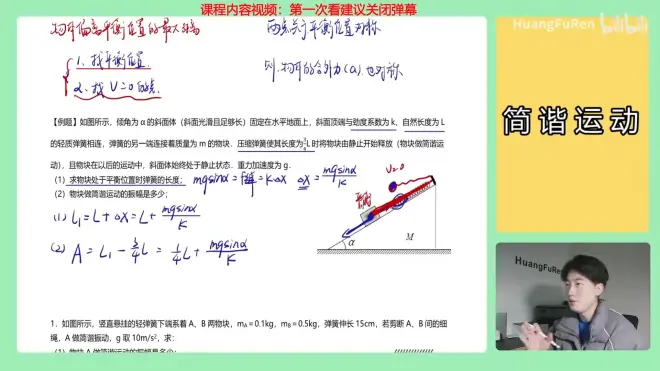 课程内容视频：第一次看建议关闭弹幕
HuangFuRen
bilibili
物体偏离平衡位置的最大距离
两点关于平衡位置对称
1、找平衡位置
2、找 V=0 的点
则：物体的合外力(a)也对称
简谐运动
【例题】如图所示，倾角为 α 的斜面体（斜面光滑且足够长）固定在水平地面上，斜面顶端与劲度系数为 k、自然长度为 L
的轻质弹簧相连，弹簧的另一端连接着质量为 m 的物块．压缩弹簧使其长度为¾L 时将物块由静止开始释放（物块做简谐运
动），且物块在以后的运动中，斜面体始终处于静止状态．重力加速度为 g．
(1) 求物块处于平衡位置时弹簧的长度；
mgsinα = F弹 = K·Δx Δx = mgsinα/K
(2) 物块做简谐运动的振幅是多少；
V=0
(1) L₁ = L + Δx = L + mgsinα/K
(2) A = L₁ - ¾L = ¼L + mgsinα/K
α
M
HuangFuRen
1．如图所示，竖直悬挂的轻弹簧下端系着 A、B 两物块，mA＝0.1kg，mB＝0.5kg，弹簧伸长 15cm，若剪断 A、B 间的细
绳，A 做简谐振动，g 取 10m/s²，求：
(1) 物块 A 做简谐运动的振幅是多少